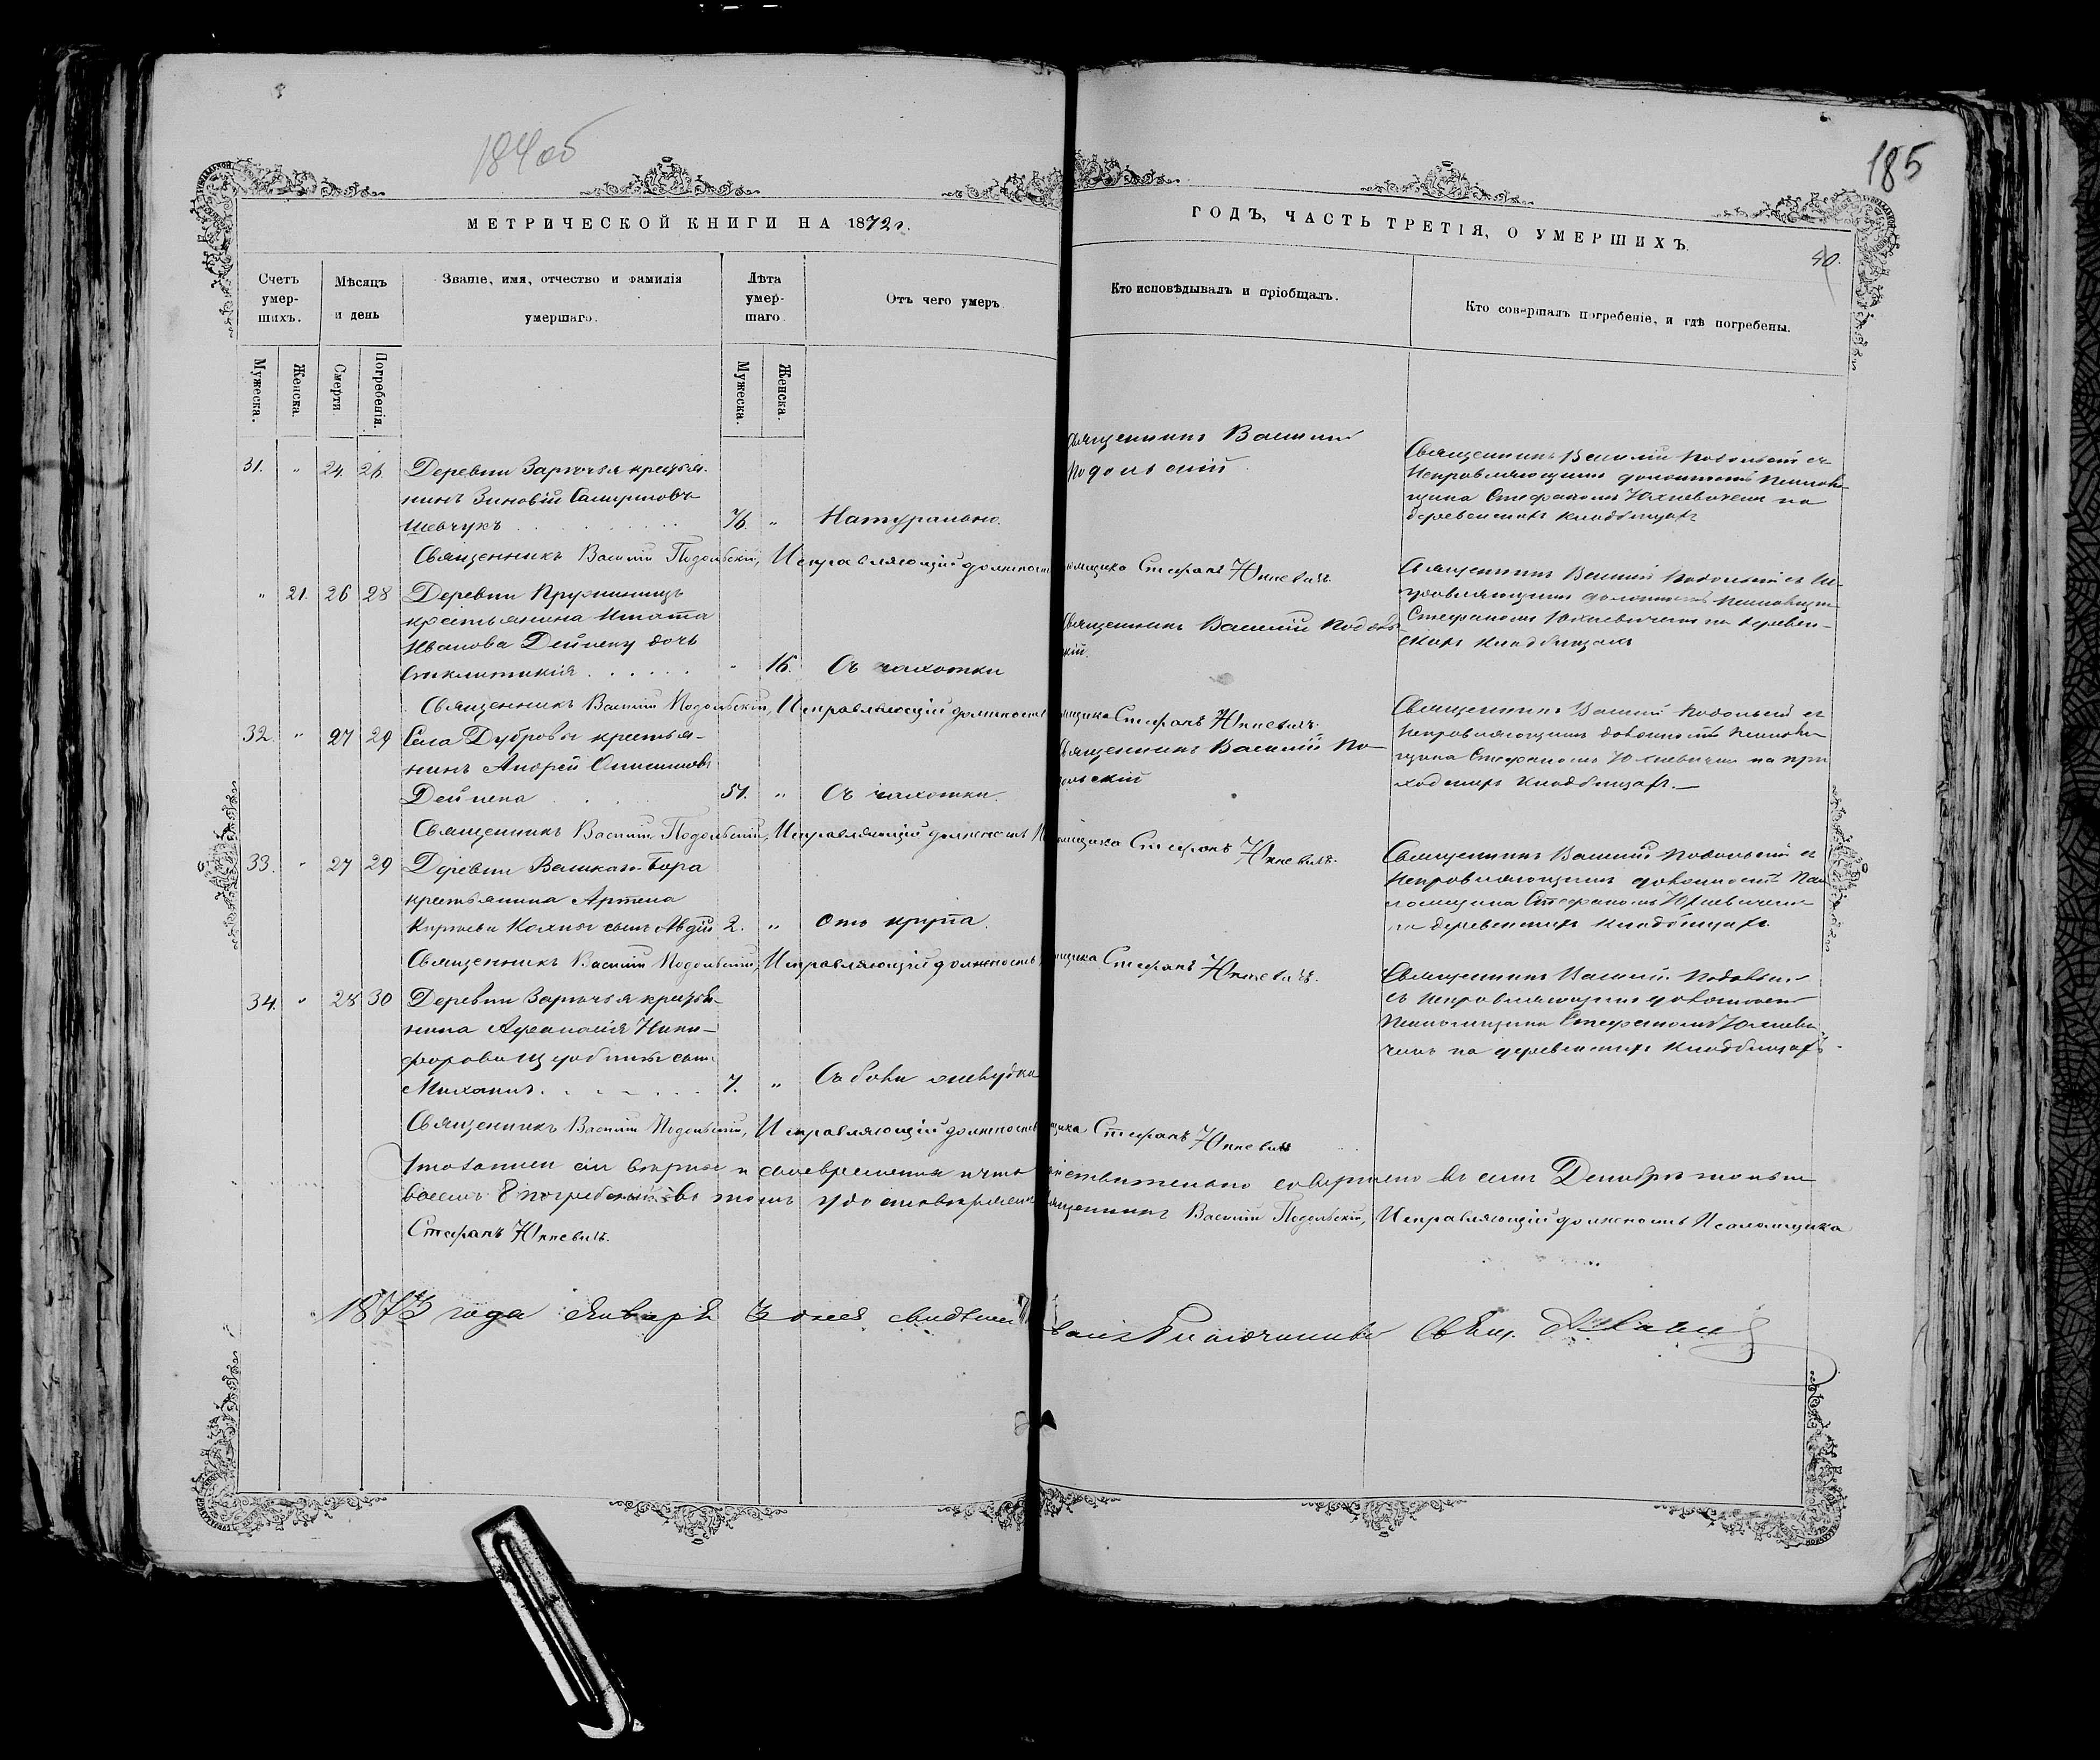 184 об
185
МЕТРИЧЕСКОЙ КНИГИ НА 1872 г.
ГОДЪ, ЧАСТЬ ТРЕТІЯ, О УМЕРШИХЪ.
40.
Счетъ умер-шихъ.
Мѣсяцъ и день
Званіе, имя, отчество и фамилія умершаго.
Лѣта умер-шаго.
Отъ чего умеръ
Кто исповѣдывалъ и пріобщалъ.
Кто совершалъ погребеніе, и гдѣ погребены.
Мужеска.
Женска.
Смерти
Погребенія.
Мужеска.
Женска.
31. " 24. 26. Деревни Заречья крестья-
нинъ Зиновій
Шевчукъ 76. " Натурально.
Священникъ Василій
Подольскій.
Священникъ Василій Подольскій съ
Исправляющимъ должность Псаломщика Стефаномъ Юхневичемъ на
деревенскихъ кладбищахъ
Священникъ Василій Подольскій, Исправляющій должность Псаломщика Стефанъ Юхневичъ.
" 21. 26 28 Деревни
крестьянина Игната
Иванова Дейнеки дочь
Синклитикія " 16. Съ чахотки
Священникъ Василій Подольскій.
Священникъ Василій Подольскій съ Ис-
правляющимъ должность Псаломщика
Стефаномъ Юхневичемъ на деревен-
скихъ кладбищахъ
Священникъ Василій Подольскій, Исправляющій должность Псаломщика Стефанъ Юхневичъ.
32. " 27 29 Села Дубровы крестья-
нинъ Андрей
Дейнека 57. " Съ чахотки.
Священникъ Василій По-
дольскій
Священникъ Василій Подольскій съ
Исправляющимъ должность Псалом-
щика Стефаномъ Юхневичемъ на при-
ходскихъ кладбищахъ.
Священникъ Василій Подольскій, Исправляющій должность Псаломщика Стефанъ Юхневичъ.
33. " 27 29 Деревни
крестьянина Артема
сынъ Авдій 2. " Отъ крупа.
Священникъ Василій Подольскій съ
Исправляющимъ должность Пса-
ломщика Стефаномъ Юхневичемъ
на деревенскихъ кладбищахъ.
Священникъ Василій Подольскій, Исправляющій должность Псаломщика Стефанъ Юхневичъ.
34. " 28 30 Деревни Заречья крестья-
нина Афанасія Ники-
форова сынъ
Михаилъ 7. " Съ боли желудка
Священникъ Василій Подольскій
съ Исправляющимъ должность
Псаломщика Стефаномъ Юхневи-
чемъ на деревенскихъ кладбищахъ.
Священникъ Василій Подольскій, Исправляющій должность Псаломщика Стефанъ Юхневичъ
Что записи сіи вѣрны и своевременны и что дѣйствительно совершено въ семъ Декабрѣ
всего 8 погребеній въ томъ удостовѣряемъ Священникъ Василій Подольскій, Исправляющій должность Псаломщика
Стефанъ Юхневичъ.
1873 года Января 3 дня Благочинный Свящ.